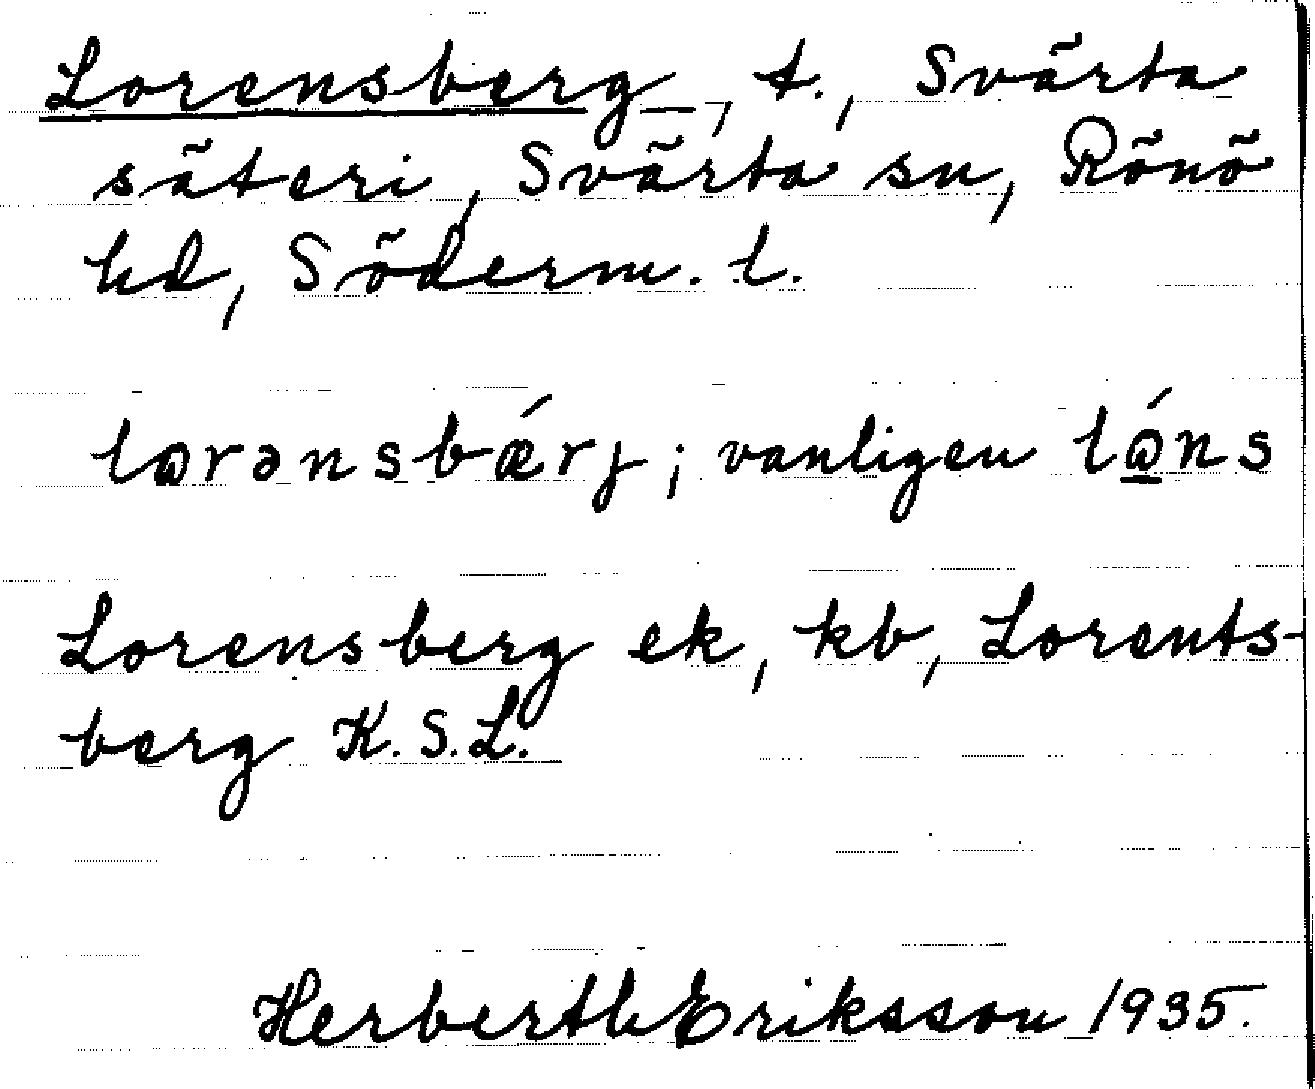 Lorensberg, t., Svärta
säteri, Svärta sn, Rönö
hd, Söderm. l.
lorənsbǽrj; vanligen ló̲ns
Lorensberg ek, kb, Lorents-
berg K.S.L.
Herberth Eriksson 1935.